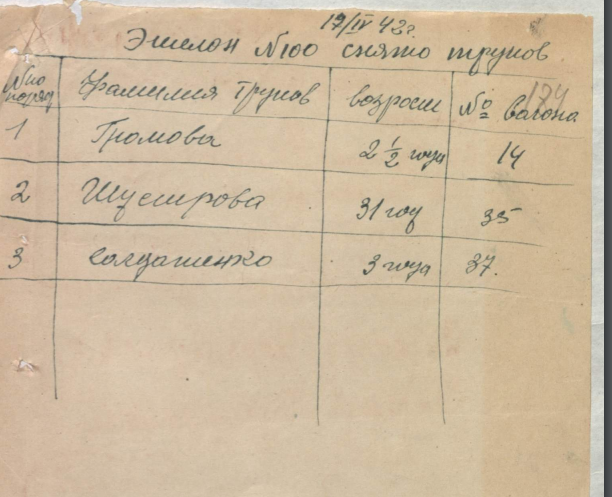 17/IV 42г.
Эшелон №100 снято трупов
№ по поряд Фамилия трупов возраст № вагона
174
1 Громова 2 1/2 года 14
2 Шустрова 31 год 35
3 Солдатенко 3 года 37.